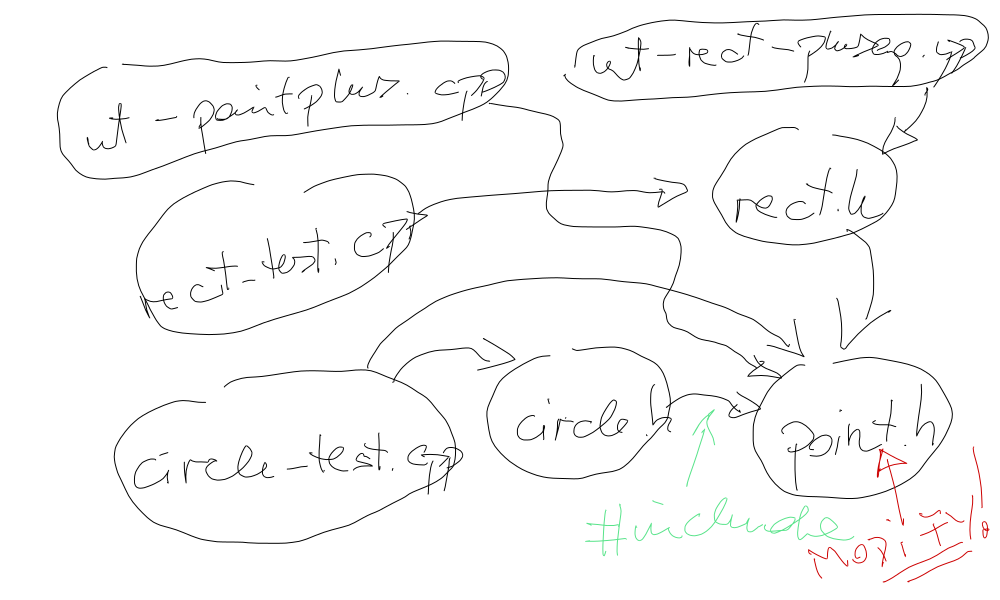 ut-rect-pluseq.cpp
ut-pointplus.cpp
rect.h
rect-test.cpp
circle.h
point.h
circle-test.cpp
#include